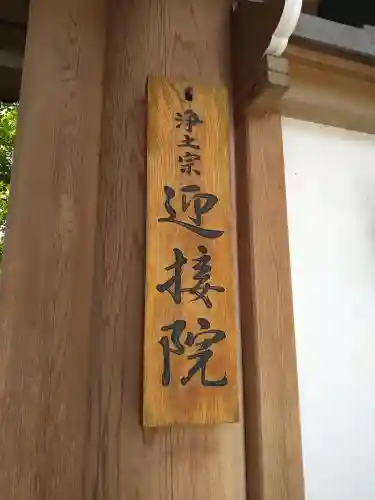 浄土宗
迎接院